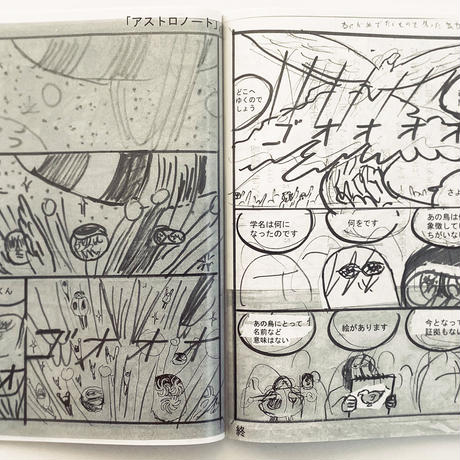 「アストロノート」
どこへ
ゆくので
しょう
ゴオオオオ
さよ
学名は何に
なったのです
何をです
あの鳥は
象徴して
ちがいな
くん
ゴオオオ
あの鳥にとって
名前など
意味はない
絵があります
今となって
証拠もない
終